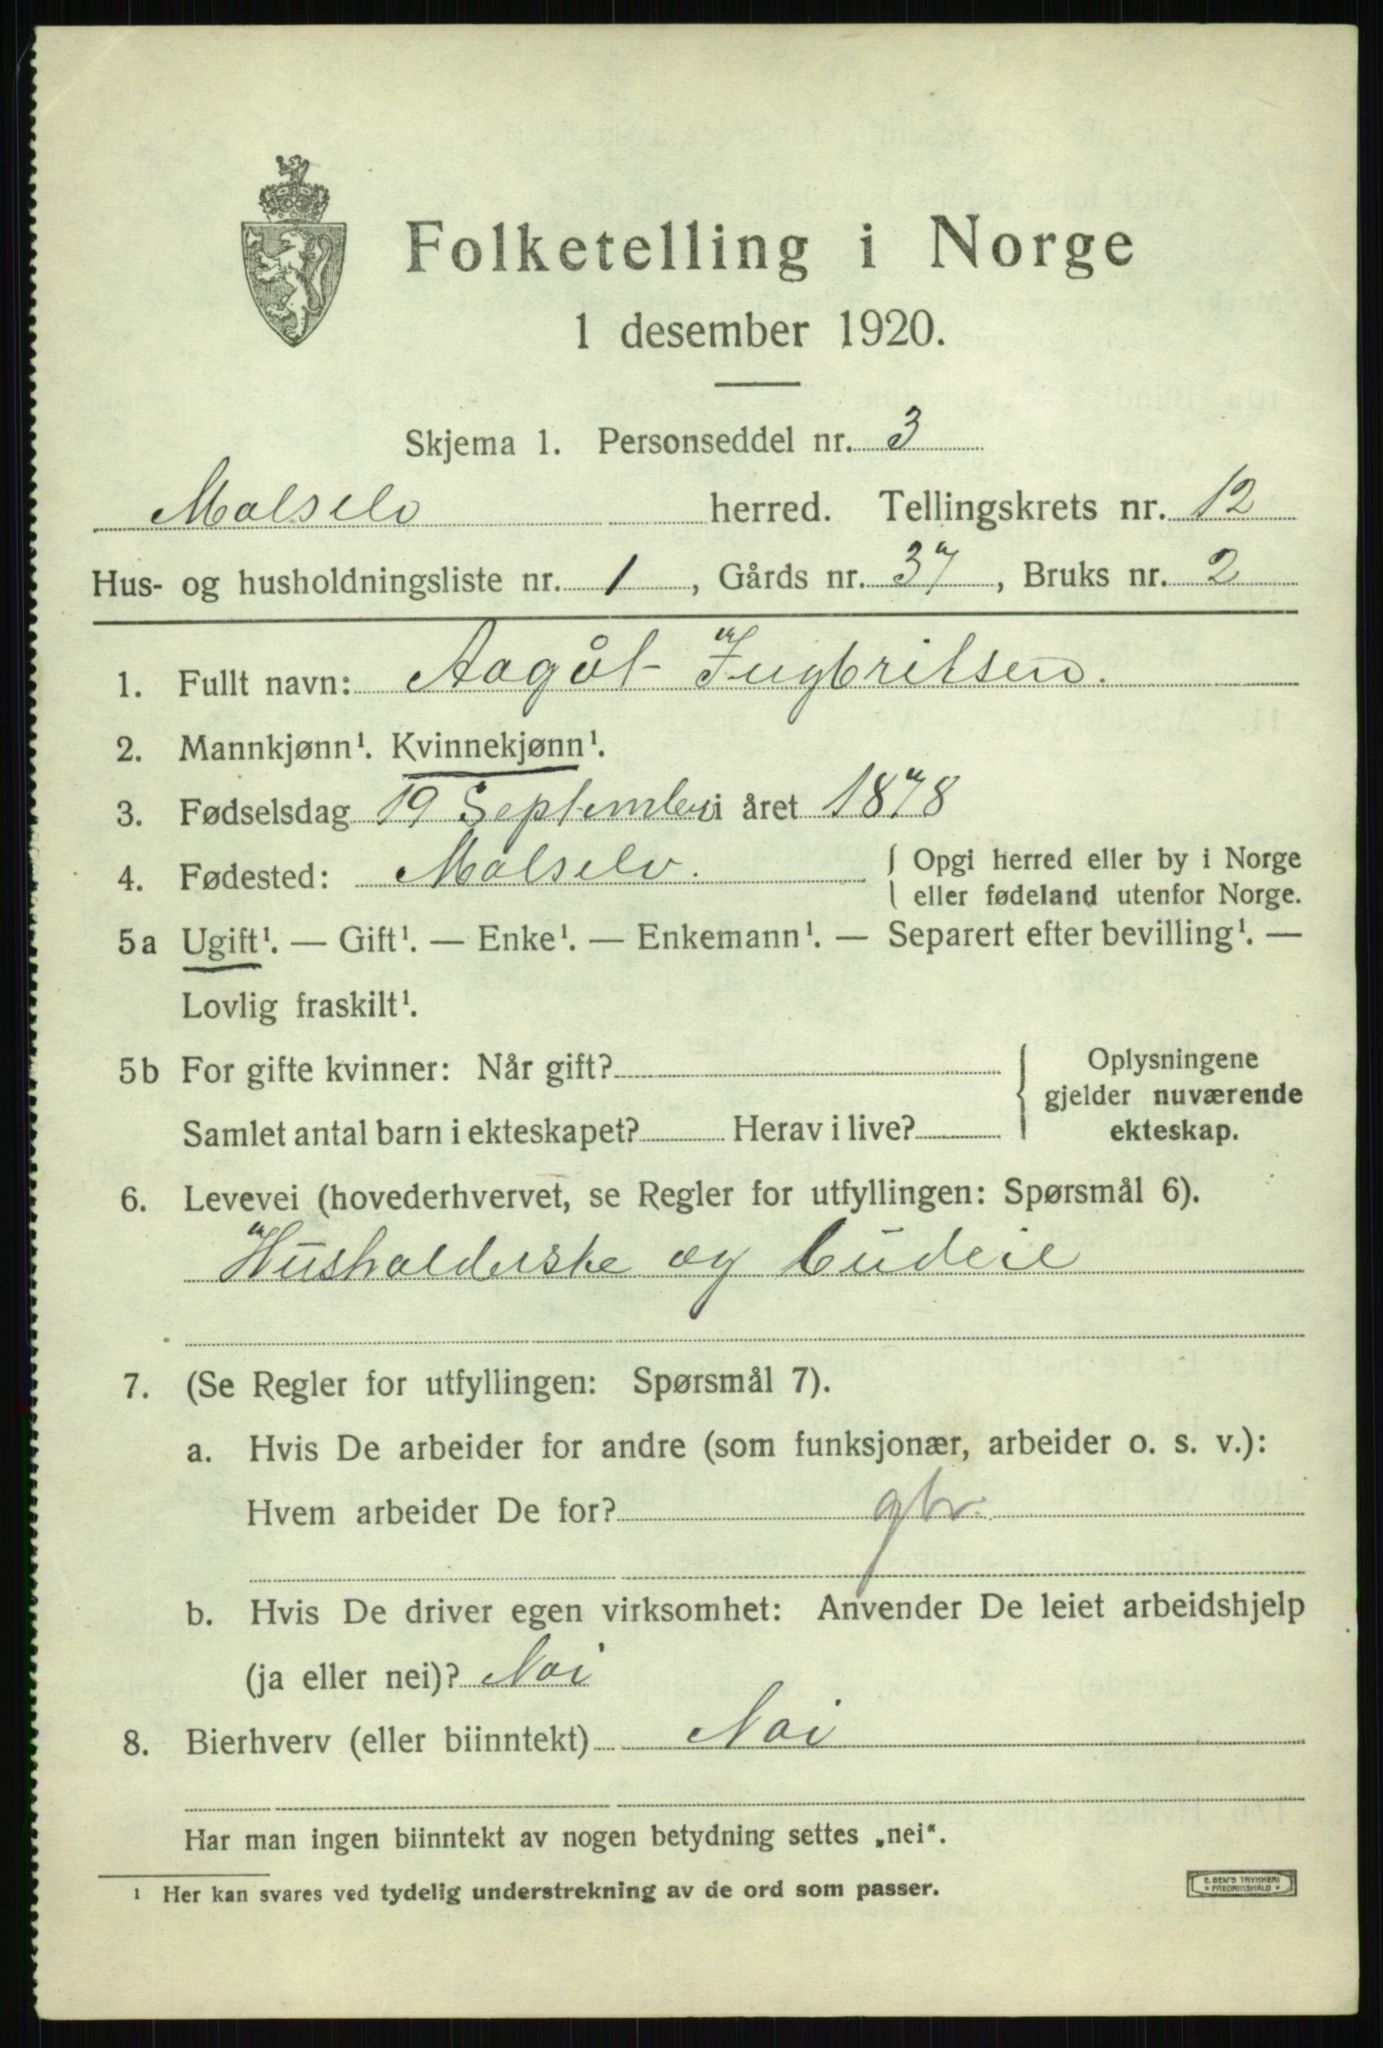 Folketelling i Norge
1 desember 1920.
Skjema 1. Personseddel nr. 3
Målselv herred. Tellingskrets nr. 12
Hus- og husholdningsliste nr. 1, Gårds nr. 37, Bruks nr. 2
1. Fullt navn: Aagåt Ingbritsen.
2. Mannkjønn¹. Kvinnekjønn¹.
3. Fødselsdag 19 September i året 1878
4. Fødested: Målselv. { Opgi herred eller by i Norge
eller fødeland utenfor Norge.
5a Ugift¹. — Gift¹. — Enke¹. — Enkemann¹. — Separert efter bevilling¹. —
Lovlig fraskilt¹.
5b For gifte kvinner: Når gift?
Samlet antal barn i ekteskapet? Herav i live?
Oplysningene
gjelder nuværende
ekteskap.
6. Levevei (hovederhvervet, se Regler for utfyllingen: Spørsmål 6).
Husholderske og budeie
7. (Se Regler for utfyllingen: Spørsmål 7).
a. Hvis De arbeider for andre (som funksjonær, arbeider o. s. v.):
Hvem arbeider De for? gbr.
b. Hvis De driver egen virksomhet: Anvender De leiet arbeidshjelp
(ja eller nei)? Nei
8. Bierhverv (eller biinntekt) Nei
Har man ingen biinntekt av nogen betydning settes „nei".
¹ Her kan svares ved tydelig understrekning av de ord som passer.
E. SEM'S TRYKKERI
* FREDRIKSHALD *